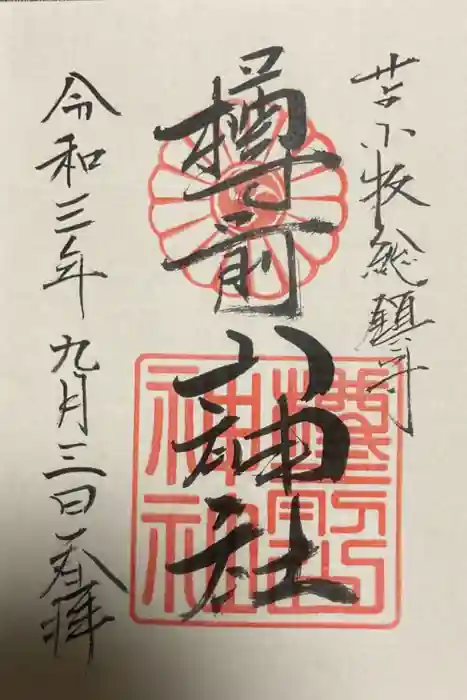 苫小牧総鎮守
樽前山神社
令和三年九月三日奉拝
樽前山
神社